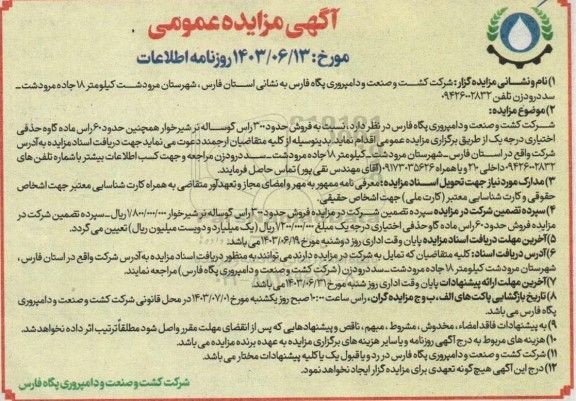 آگهی مزایده عمومی
مورخ: ۱۴۰۳/۰۶/۱۳ روزنامه اطلاعات
۱) نام و نشانی مزایده گزار: شرکت کشت و صنعت و دامپروری پگاه فارس به نشانی استان فارس، شهرستان مرودشت کیلومتر ۱۸ جاده مرودشت ـ
سد درودزن تلفن ۰۹۴۲۶۰۰۲۸۳۲
۲) موضوع مزایده:
شرکت کشت و صنعت و دامپروری پگاه فارس در نظر دارد، نسبت به فروش حدود ۳۰۰ راس گوساله نر شیرخوار همچنین حدود ۶۰ راس ماده گاوه حذفی
اختیاری درجه یک از طریق برگزاری مزایده عمومی اقدام نماید. بدینوسیله از کلیه متقاضیان ارجمند دعوت می نماید جهت دریافت اسناد مزایده به آدرس
شرکت واقع در استان فارس ـ شهرستان مرودشت ـ کیلومتر ۱۸ جاده مرودشت ـ سد درودزن مراجعه و جهت کسب اطلاعات بیشتر با شماره تلفن های
۰۹۴۲۶۰۰۲۸۳۲ داخلی ۲۱۰ و یا همراه ۰۹۱۷۳۰۳۵۶۲۶ (آقای مهندس نقی پور) تماس حاصل فرمایند.
۳) مدارک مورد نیاز جهت تحویل اسناد مزایده: معرفی نامه ممهور به مهر و امضای مجاز و تعهدآور متقاضی به همراه کارت شناسایی معتبر جهت اشخاص
حقوقی و کارت شناسایی معتبر (کارت ملی) جهت اشخاص حقیقی.
۴) سپرده تضمین شرکت در مزایده سپرده تضمین شرکت در مزایده فروش حدود ۳۰۰ راس گوساله نر شیرخوار ۷۸۰۰/۰۰۰/۰۰۰ ریال ـ سپرده تضمین شرکت در
مزایده فروش حدود ۶۰ راس ماده گاو حذفی اختیاری درجه یک مبلغ ۱۲۰۰/۰۰۰/۰۰۰ ریال (یک میلیارد و دویست میلیون ریال) تعیین می گردد.
۵) آخرین مهلت دریافت اسناد مزایده پایان وقت اداری روز دوشنبه مورخ ۱۴۰۳/۰۶/۱۹ می باشد.
۶) آدرس دریافت اسناد: کلیه متقاضیان که تمایل به شرکت در مزایده دارند می توانند به منظور دریافت اسناد مزایده به آدرس شرکت واقع در استان فارس،
شهرستان مرودشت کیلومتر ۱۸ جاده مرودشت ـ سد درودزن (شرکت کشت و صنعت و دامپروری پگاه فارس) مراجعه نمایند.
۷) آخرین مهلت ارائه پیشنهادات پایان وقت اداری روز شنبه مورخ ۱۴۰۳/۰۶/۳۱ می باشد.
۸) تاریخ بازگشایی پاکت های الف، ب و ج مزایده گران، راس ساعت ۱۰:۰۰ صبح روز یکشنبه مورخ ۱۴۰۳/۰۷/۰۱ در محل قانونی شرکت کشت و صنعت و دامپروری
پگاه فارس می باشد.
۹) به پیشنهادات فاقد امضاء، مخدوش، مشروط، مبهم، ناقص و پیشنهادهایی که پس از انقضای مهلت مقرر واصل شود مطلقاً ترتیب اثر داده نخواهد شد.
۱۰) هزینه های مربوط به درج آگهی روزنامه و یا سایر هزینه های برگزاری مزایده به عهده برنده مزایده می باشد.
۱۱) شرکت کشت و صنعت و دامپروری پگاه فارس در رد و یا قبول یک یا کلیه پیشنهادات مختار می باشد.
۱۲) درج این آگهی هیچ گونه تعهدی برای مزایده گزار ایجاد نخواهد نمود.
شرکت کشت و صنعت و دامپروری پگاه فارس